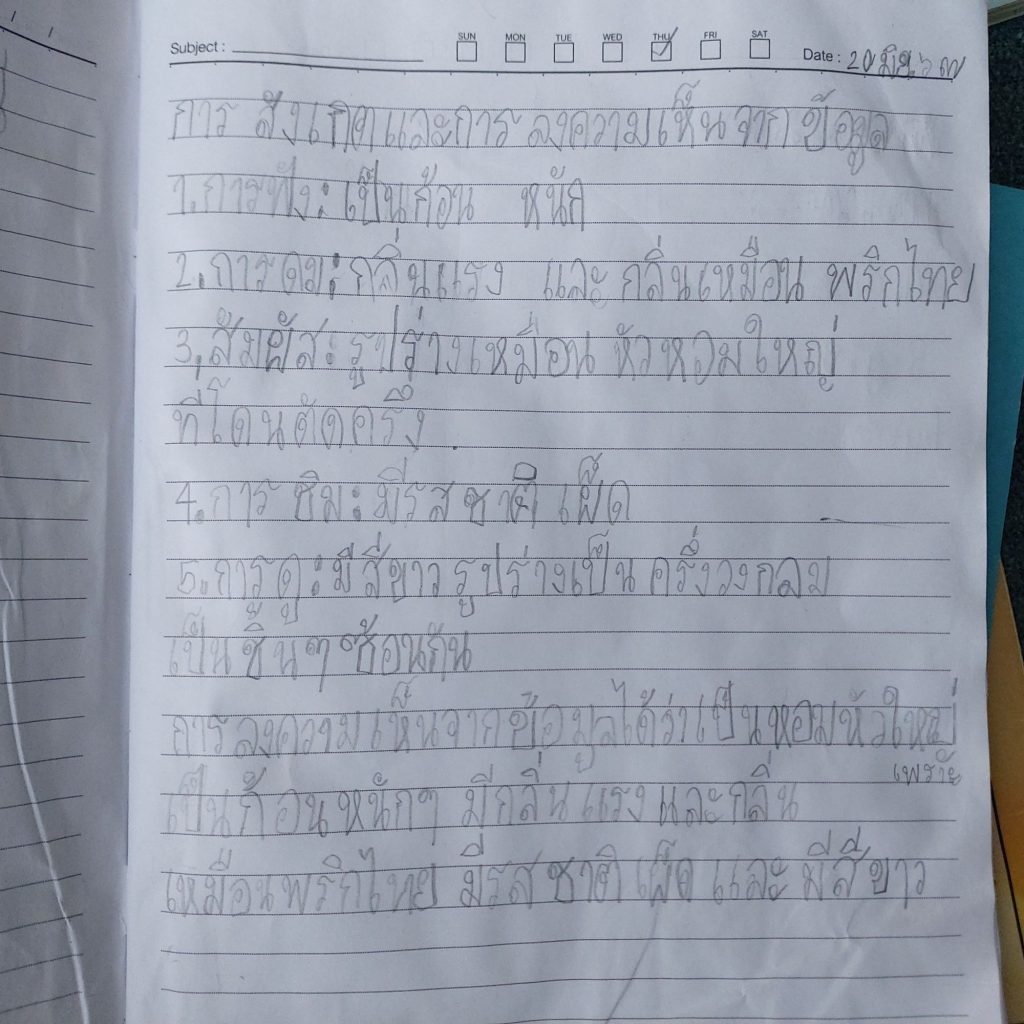 Subject :
SUN MON TUE WED THU FRI SAT
Date : 20 มิย ๖๗
การ สังเกตและการ ลงความเห็นจาก ข้อมูล
1.การฟัง: เป็นก้อน หนัก
2.การดม: กลิ่นแรง และ กลิ่นเหมือน พริกไทย
3,สัมผัส: รูปร่างเหมือน หัวหอมใหญ่
ที่โดนตัดครึ่ง.
4.การ ชิม: มีรสชาติ เผ็ด
5.การดู: มีสีขาว รูปร่างเป็น ครึ่งวงกลม
เป็นชิ้นๆ ซ้อนกัน
การลงความเห็นจากข้อมูลได้ว่าเป็นหอมหัวใหญ่
เพราะ
เป็นก้อนหนักๆ มีกลิ่นแรงและกลิ่น
เหมือนพริกไทย มีรสชาติเผ็ด และ มีสีขาว